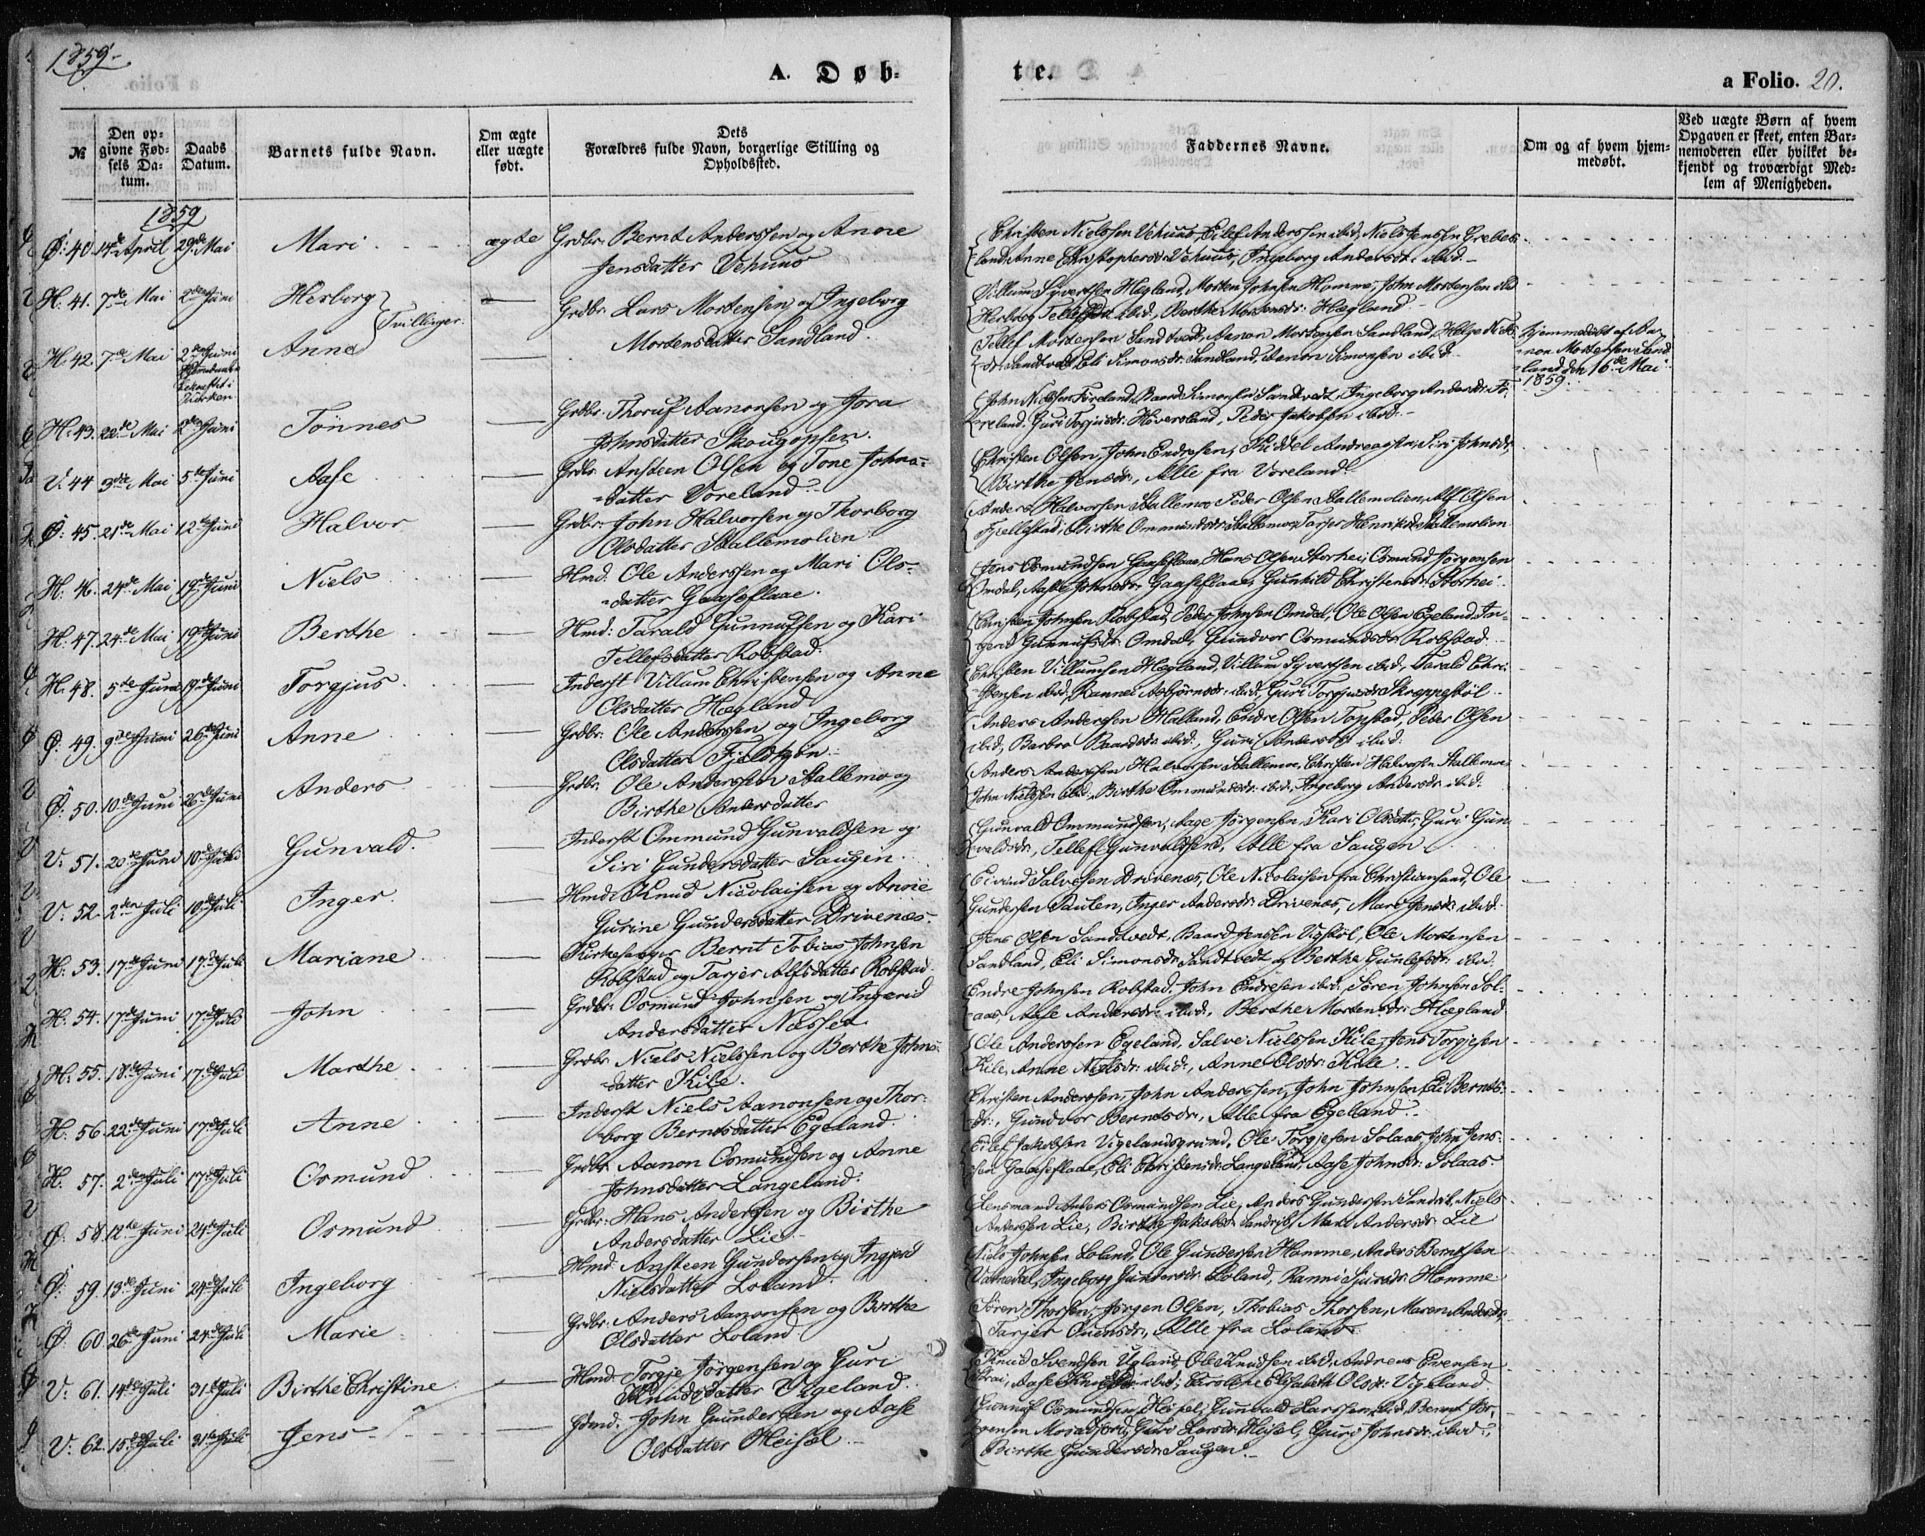 1859.
A. Døb-
te.
a Folio. 20.
№
Den op-
givne Fød-
sels Da-
tum.
Daabs
Datum.
Barnets fulde Navn.
Om ægte
eller uægte
født.
Dets
Forældres fulde Navn, borgerlige Stilling og
Opholdssted.
Faddernes Navne.
Om og af hvem hjem-
medøbt.
Ved uægte Børn af hvem
Opgaven er skeet, enten Bar-
nemoderen eller hvilket be-
kjendt og troværdigt Med-
lem af Menigheden.
1859
Ø: 40. 14de April 29de Mai Mari ægte Grdbr. Bernt Anderssen og Anne
Jensdatter Vehuus
Christen Nielssen Vehuus, Eilef Anderssen ibid, Niels Jenssen Grebes-
land, Anne Christophersdr Vehuus, Ingeborg Andersdr. ibid.
H. 41. 7de Mai 2den Juni Herborg Tvillinger. Grdbr. Lars Mortensen og Ingeborg
Mortensdatter Sandland.
Villum Syvertsen Hægland, Morten Johnsen Homme, John Mortensen ibid
Herborg Tellefsdr ibid, Berthe Mortensdr. Hægland.
H. 42. 7de Mai 2den Juni Anne
bekræftet i
Kirken
Tellef Mortensen Sandtvedt, Aanon Mortensen Sandland, Helge Niels-
dr. Sandtvedt, Eli Simonsdr. Sandland, Aanon Simonsen ibid.
Hjemmedøbt af Aa-
non Mortensen Sand-
land den 16de Mai
1859.
H. 43. 22de Mai 2den Juni Tønnes Grdbr. Thoruf Aanonsen og Jora
Johnsdatter Skougopsen.
John Nielssen Føreland, Baard Simonsen Sandtvedt, Ingeborg Andersdr. Fø-
reland, Guri Torjusdr. Höversland, Peder Jakobsen ibid.
V. 44 3die Mai 5te Juni Aase Grdbr. Ansteen Olsen og Tone Johns-
datter Voreland.
Christen Olsen, John Endresen, Kiddel Andreassen, Siri Johnsdr,
Birthe Jensdr, Alle fra Voreland.
Ø: 45. 21de Mai 12te Juni Halvor Grdbr. John Halvorsen og Thorborg
Olsdatter Stallemolien
Anders Halvorsen Stallemo, Peder Olsen Stallemolien, Alf Olsen
Fjellestad, Birthe Ommundsdr Stallemo, Tarjer Henriksdr Stallemolien.
H. 46. 24de Mai 19de Juni Niels Hmd. Ole Anderssen og Mari Ols-
datter Gaaseflaae.
Jens Osmundsen Gaaseflaae, Hans Olsen Storhei, Osmund Jørgensen
Omdal, Aase Johnsdr. Gaaseflaae, Gunhild Christensdr. Storhei.
H. 47. 24de Mai 19de Juni Berthe Hmd: Tarald Gunnufsen og Kari
Tellefsdatter Robstad.
Christen Johnsen Robstad, Peder Johnsen Omdal, Ole Olsen Egeland, In-
gerd Gunnufsdr. Omdal, Gundvor Osmundsdr. Robstad.
H. 48. 5te Juni 19de Juni Torgjus Inderst Villum Christensen og Anne
Olsdatter Hægland
Christen Villumsen Hægland, Villum Syvertsen ibid, Tarald Chri-
stensen ibid, Rannei Asbjørnsdr. ibid, Guri Torgjusdr. Skreppestøl.
Ø. 49. 9de Juni 26de Juni Anne Grdbr. Ole Anderssen og Ingeborg
Olsdatter
Anders Anderssen Halland, Endre Olsen Topstad, Peder Olsen
ibid, Barbro Baardsdr. ibid, Guri Andersdr ibid.
Ø. 50. 10de Juni 26de Juni Anders Grdbr. Ole Anderssen Stallemo og
Birthe Andersdatter
Anders Anderssen Halvorsen Stallemo, Christen Halvorsen Stallemo
John Nielssen ibid, Birthe Ommundsdr. ibid, Ingeborg Andersdr. ibid.
V. 51. 20de Juni 10de Juli Gunvald. Inderst Ommund Gunvaldsen og
Siri Gundersdatter Saugen.
Gunvald Ommundsen, Aage Jørgensen, Kari Olsdatter, Guri Gun-
valdsdr, Tellef Gunvaldsen, Alle fra Saugen
V. 52. 2den Juli 10de Juli Inger. Hmd. Knud Nicolaisen og
Gurine Gundersdatter Drivenæs.
Eivind Salvesen Drivenæs, Ole Nicolaisen fra Christiansand, Ole
Gundersen Paulen, Inger Andersdr. Drivenæs, Mari Jensdr. ibid.
H. 53. 17de Juni 17de Juli Mariane Kirkesanger Bernt Tobias Johnsen
Robstad og Tarjer Alfsdatter Robstad.
Jens Olsen Sandtvedt, Baard Jensen Upstøl, Ole Mortensen
Sandland, Eli Simonsdr. Sandtvedt og Berthe Gunlefsdr. ibid.
H. 54. 17de Juni 17de Juli John Grdbr. Osmund Johnsen og Ingerid
Andersdatter Næsset
Endre Johnsen Robstad, John Endresen ibid, Søren Johnsen Sol-
aas, Aase Andersdr. ibid. Berthe Mortensdr. Hægland
H. 55. 18de Juni 17de Juli Marthe Grdbr. Niels Nielssen og Berthe Johns-
datter Kile.
Ole Anderssen Egeland, Salve Nielssen Kile, Jens Torgjesen
Kile, Anne Nielsdr. ibid, Anne Olsdr. Kile.
H. 56. 22de Juni 17de Juli Anne Inderst Niels Aanonsen og Thor-
borg Berntsdatter Egeland.
Christen Anderssen, John Anderssen, John Johnsen, Eli Bernts-
dr., Gundvor Berntsdr., Alle fra Egeland.
H. 57. 2den Juli 17de Juli Osmund Grdbr. Aanon Osmundsen og Anne
Johnsdatter Langeland.
Eilef Jakobsen Vigelandsgrund, Ole Torgjesen Solaas, John Jens-
sen Gaaseflaae, Eli Christensdr. Langeland, Aase Johnsdr. Solaas.
Ø: 58. 12te Juni 24de Juli Osmund Grdbr. Hans Anderssen og Birthe
Andersdatter Lie
Lensmand Anders Osmundsen Lie, Anders Gundersen Sandrib, Niels
Anderssen Lie, Birthe Jakobsdr Sandrib, Mari Andersdr. Lie
Ø: 59. 13de Juni 24de Juli Ingeborg Hmd. Ansteen Gundersen og Ingjerd
Nielsdatter Loland.
Niels Johnsen Loland, Ole Gundersen Homme, Anders Berntsen
Vatnedal, Ingeborg Gundersdr. Loland, Ranni Sjursdr. Homme
Ø: 60. 26de Juni 24de Juli Marie Grdbr. Anders Aanonsen og Berthe
Olsdatter Loland
Søren Thorsen, Jørgen Olsen, Thobias Thorsen, Maren Andersdr.
Tarjer Evensdr., Alle fra Loland.
V. 61. 14de Juli 31te Juli Birthe Christine Hmd. Torje Jørgensen og Guri
Knudsdatter Vigeland.
Knud Svendsen Ugland, Ole Knudsen ibid, Andreas Evensen
Strai, Aase Knudsdr ibid, Caroline Elisabeth Olsdr. Vigeland.
V. 62. 15de Juli 31te Juli Jens Gdmd. John Gundersen og Aase
Olsdatter Heisel.
Gunnuf Osmundsen Heisel, Gunvald Larssen ibid, Bernt Jør-
gensen Mosfjord, Guri Larsdr. Heisel, Guri Johnsdr. ibid,
Birthe Gundersdr. Saugen.